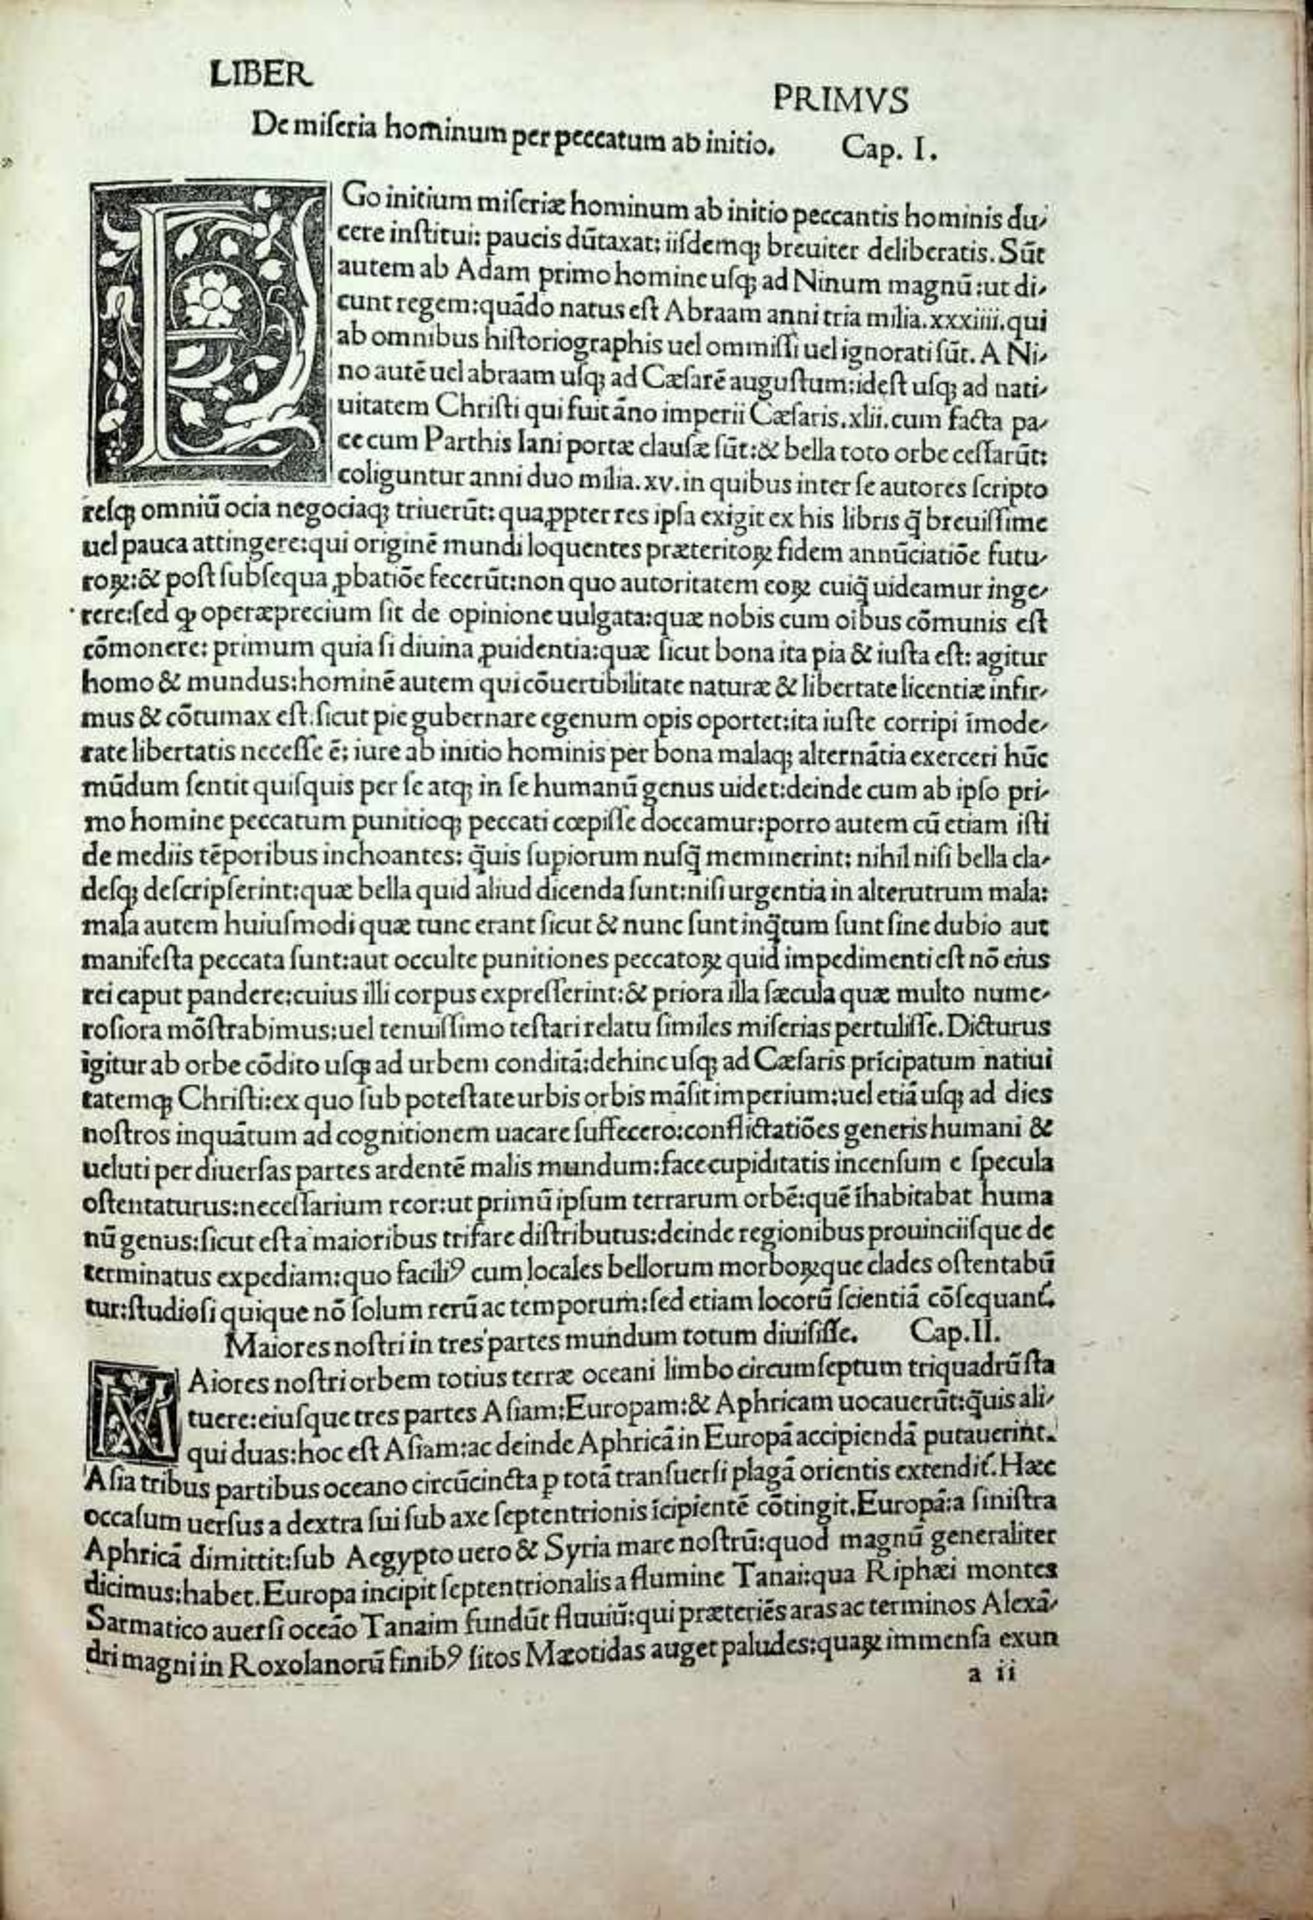 LIBER PRIMVS
De miſeria hominum per peccatum ab initio. Cap. I.
EGo initium miſeriæ hominum ab initio peccantis hominis du-
cere inſtitui: paucis dūtaxat: iiſdemqꝫ breuiter deliberatis. Sūt
autem ab Adam primo homine uſqꝫ ad Ninum magnū: ut di-
cunt regem: quādo natus eſt Abraam anni tria milia. xxxiiii. qui
ab omnibus hiſtoriographis uel ommiſſi uel ignorati ſūt. A Ni-
no autē uel abraam uſqꝫ ad Cæſarē auguſtum: ideſt uſqꝫ ad nati-
uitatem Chriſti qui fuit āno imperii Cæſaris. xlii. cum facta pa-
ce cum Parthis Iani portæ clauſæ ſūt: & bella toto orbe ceſſarūt:
coliguntur anni duo milia. xv. in quibus inter ſe autores ſcripto
reſqꝫ omniū ocia negociaqꝫ triuerūt: quaꝓpter res ipſa exigit ex his libris q̄ breuiſſime
uel pauca attingere: qui originē mundi loquentes præteritoꝝ fidem annūciatiōe futu-
roꝝ: & poſt ſubſequa ꝓbatiōe fecerūt: non quo autoritatem eoꝝ cuiq̄ uideamur inge-
rere: ſed ꝙ operæprecium ſit de opinione uulgata: quæ nobis cum oibus cōmunis eſt
cōmonere: primum quia ſi diuina ꝓuidentia: quæ ſicut bona ita pia & iuſta eſt: agitur
homo & mundus: hominē autem qui cōuertibilitate naturæ & libertate licentiæ infir-
mus & cōtumax eſt. ſicut pie gubernare egenum opis oportet: ita iuſte corripi īmode-
rate libertatis neceſſe ē: iure ab initio hominis per bona malaqꝫ alternātia exerceri hūc
mūdum ſentit quiſquis per ſe atqꝫ in ſe humanū genus uidet: deinde cum ab ipſo pri-
mo homine peccatum punitioqꝫ peccati cœpiſſe doceamur: porro autem cū etiam iſti
de mediis tēporibus inchoantes: q̄uis ſupiorum nuſq̄ meminerint: nihil niſi bella cla-
deſqꝫ deſcripſerint: quæ bella quid aliud dicenda ſunt: niſi urgentia in alterutrum mala:
mala autem huiuſmodi quæ tunc erant ſicut & nunc ſunt inq̄tum ſunt ſine dubio aut
manifeſta peccata ſunt: aut occulte punitiones peccatoꝝ quid impedimenti eſt nō eius
rei caput pandere: cuius illi corpus expreſſerint: & priora illa ſæcula quæ multo nume-
roſiora mōſtrabimus: uel tenuiſſimo teſtari relatu ſimiles miſerias pertuliſſe. Dicturus
igitur ab orbe cōdito uſqꝫ ad urbem conditā: dehinc uſqꝫ ad Cæſaris prīcipatum natiui
tatemqꝫ Chriſti: ex quo ſub poteſtate urbis orbis māſit imperium: uel etiā uſqꝫ ad dies
noſtros inquātum ad cognitionem uacare ſuffecero: conflictatiōes generis humani &
ueluti per diuerſas partes ardentē malis mundum: face cupiditatis incenſum e ſpecula
oſtentaturus: neceſſarium reor: ut primū ipſum terrarum orbē: quē īhabitabat huma
nū genus: ſicut eſt a maioribus trifare diſtributus: deinde regionibus prouinciiſque de
terminatus expediam: quo faciliꝰ cum locales bellorum morboꝝque clades oſtentabū
tur: ſtudioſi quique nō ſolum rerū ac temporum: ſed etiam locorū ſcientiā cōſequant᷑.
Maiores noſtri in tres partes mundum totum diuiſiſſe. Cap. II.
MAiores noſtri orbem totius terræ oceani limbo circumſeptum triquadrū ſta
tuere: eiuſque tres partes Aſiam: Europam: & Aphricam uocauerūt: q̄uis ali-
qui duas: hoc eſt Aſiam: ac deinde Aphricā in Europā accipiendā putauerint.
Aſia tribus partibus oceano circūcincta ꝑ totā tranſuerſi plagā orientis extendit᷑. Hæc
occaſum uerſus a dextra ſui ſub axe ſeptentrionis īcipientē cōtingit. Europā: a ſiniſtra
Aphricā dimittit: ſub Aegypto uero & Syria mare noſtrū: quod magnū generaliter
dicimus: habet. Europa incipit ſeptentrionalis a flumine Tanai: qua Riphæi montes
Sarmatico auerſi oceāo Tanaim fundūt fluuiū: qui præteriēs aras ac terminos Alexā-
dri magni in Roxolanorū finibꝰ ſitos Mæotidas auget paludes: quaꝝ immenſa exun
a ii